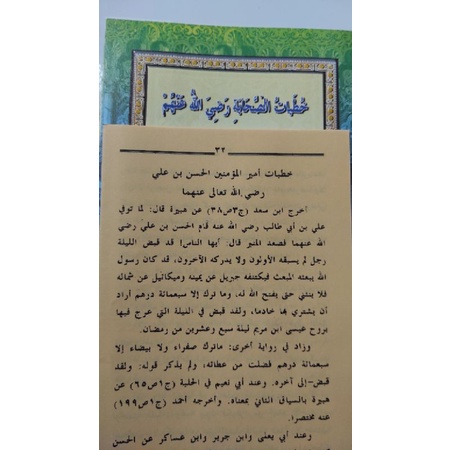 خطبات الصحابة رضي الله عنهم
٣٢
خطبات أمير المؤمنين الحسن بن علي
رضي الله تعالى عنهما
أخرج ابن سعد (ج٣ص٣٨) عن هبيرة قال: لما توفي
علي بن أبي طالب رضي الله عنه قام الحسن بن علي رضي
الله عنهما فصعد المنبر قال: أيها الناس! قد قبض الليلة
رجل لم يسبقه الأولون ولا يدركه الآخرون، قد كان رسول
الله يبعثه المبعث فيكتنفه جبريل عن يمينه وميكائيل عن شماله
فلا ينثني حتى يفتح الله له، وما ترك إلا سبعمائة درهم أراد
أن يشتري بها خادما، ولقد قبض في الليلة التي عرج فيها
بروح عيسى ابن مريم ليلة سبع وعشرين من رمضان.
وزاد في رواية أخرى: ماترك صفراء ولا بيضاء إلا
سبعمائة درهم فضلت من عطائه، ولم يذكر قوله: ولقد
قبض-إلى آخره. وعند أبي نعيم في الحلية (ج١ص٦٥) عن
هبيرة بالسياق الثاني بمعناه. وأخرجه أحمد (ج١ص١٩٩)
عنه مختصرا.
وعند أبي يعلى وابن جرير وابن عساكر عن الحسن